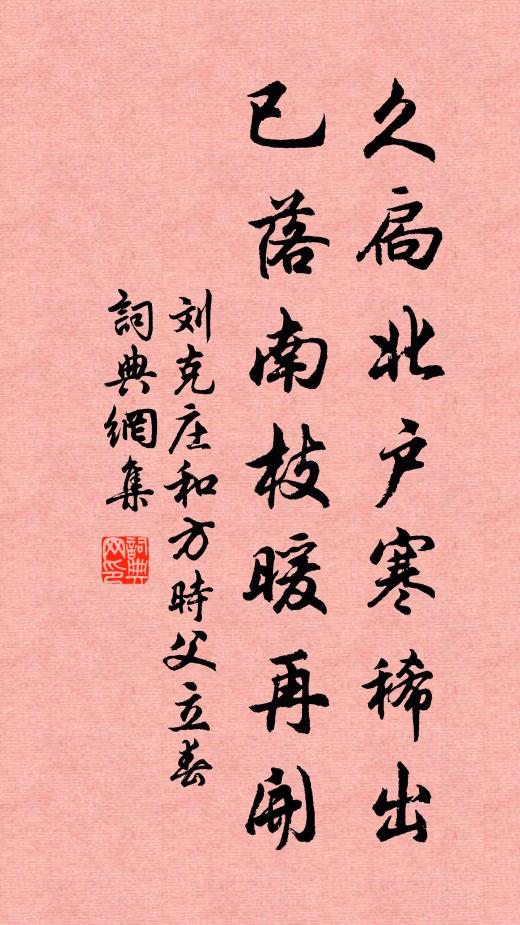 久扃北户寒稀出
已落南枝暖再開
刘克庄和方時父立春
詞典網集
詞典网印